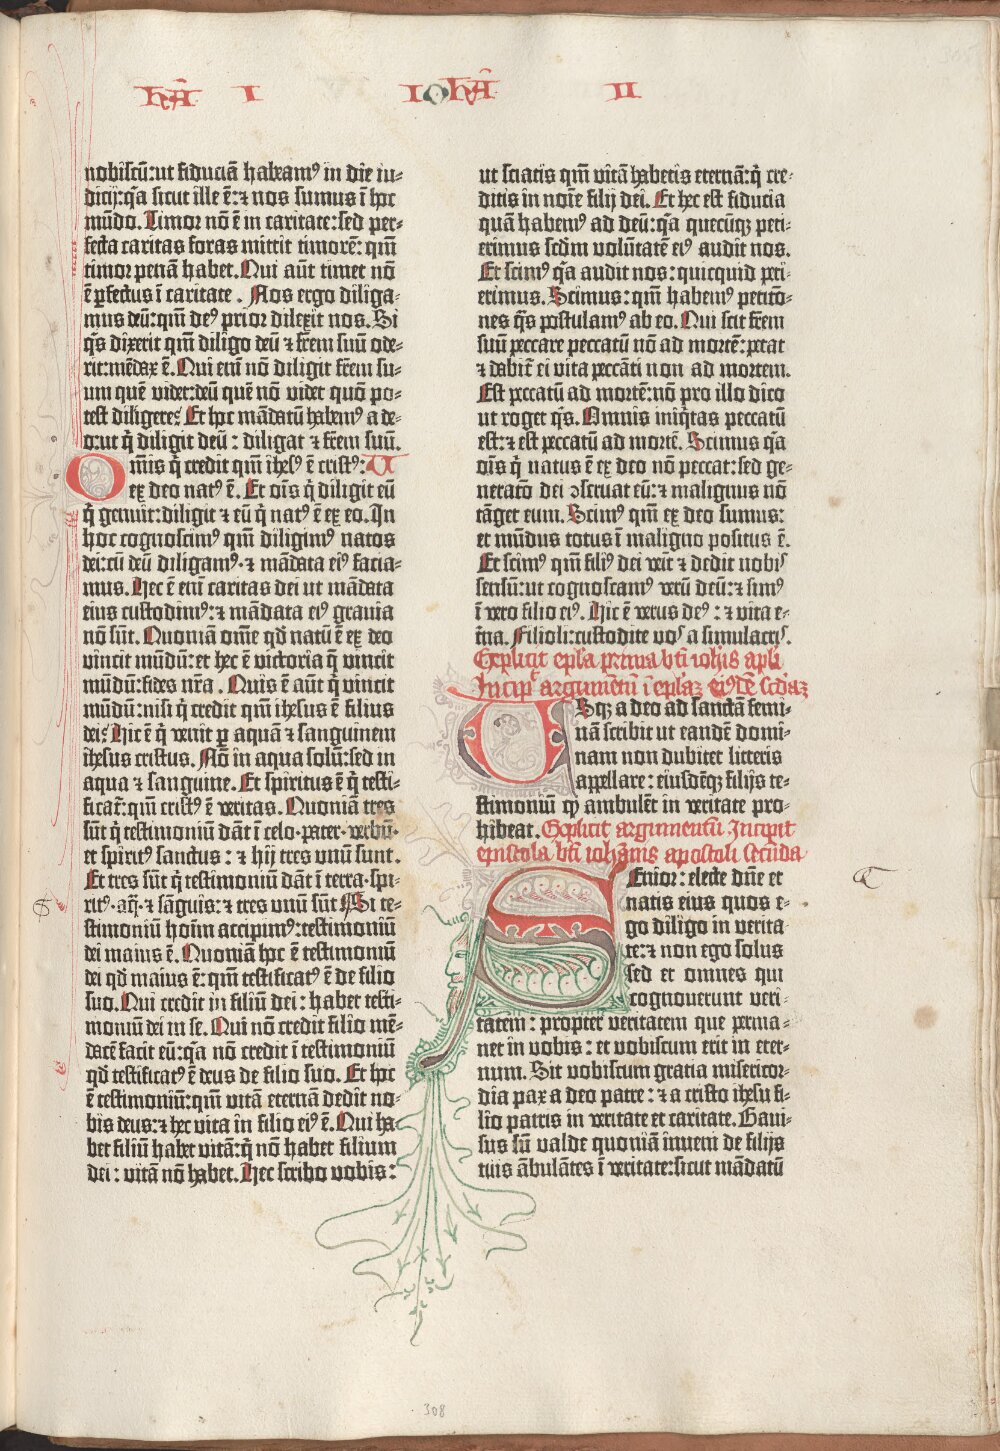 hã I IOhã II
nobiscũ: ut fiduciã habeamꝰ in die iu-
dicij: q̃a sicut ille ẽ: ⁊ nos sumus ĩ hoc
mũdo. Timor nõ ẽ in caritate: sed per-
fecta caritas foras mittit timorẽ: qm̃
timor penã habet. Qui aũt timet nõ
ẽ ꝑfectus ĩ caritate. Nos ergo diliga-
mus deũ: qm̃ deꝰ prior dilexit nos. Si
q̃s dixerit qm̃ diligo deũ ⁊ fr̃em suũ ode-
rit: mẽdax ẽ. Qui eni̅ nõ diligit fr̃em su-
um quẽ videt: deũ quẽ nõ videt quõ po-
test diligere? Et hoc mãdatũ habemꝰ a de-
o: ut q̃ diligit deũ: diligat ⁊ fr̃em suũ.
Om̃is q̃ credit qm̃ ihesꝰ ẽ cristꝰ: V
ex deo natꝰ ẽ. Et oĩs q̃ diligit eũ
q̃ genuit: diligit ⁊ eũ q̃ natꝰ ẽ ex eo. In
hoc cognoscimꝰ qm̃ diligimꝰ natos
dei: cũ deũ diligamꝰ · ⁊ mãdata eiꝰ facia-
mus. Hec ẽ eni̅ caritas dei ut mãdata
eius custodimꝰ: ⁊ mãdata eiꝰ gravia
nõ sũt. Quoniã om̃e qd̃ natũ ẽ ex deo
vincit mũdũ: et hec ẽ victoria q̃ vincit
mũdũ: fides nr̃a. Quis ẽ aũt q̃ vincit
mũdũ: nisi q̃ credit qm̃ ihesus ẽ filius
dei? Hic ẽ q̃ venit ꝑ aquã ⁊ sanguinem
ihesus cristus. Nõ in aqua solũ: sed in
aqua ⁊ sanguine. Et spiritus ẽ q̃ testi-
ficat̃: qm̃ cristꝰ ẽ veritas. Quoniã tres
sũt q̃ testimoniũ dãt ĩ celo · pater · verbũ ·
et spiritꝰ sanctus: ⁊ hij tres unũ sunt.
Et tres sũt q̃ testimoniũ dãt ĩ terra · spi-
ritꝰ · aq̃ · ⁊ sãguis: ⁊ tres unũ sũt. Si te-
stimoniũ hoĩm accipimꝰ: testimoniũ
dei maius ẽ. Quoniã hoc ẽ testimoniũ
dei qd̃ maius ẽ: qm̃ testificatꝰ ẽ de filio
suo. Qui credit in filiũ dei: habet testi-
moniũ dei in se. Qui nõ credit filio mẽ-
dacẽ facit eũ: q̃a nõ credit ĩ testimoniũ
qd̃ testificatꝰ ẽ deus de filio suo. Et hoc
ẽ testimoniũ: qm̃ vitã eternã dedit no-
bis deus: ⁊ hec vita in filio eiꝰ ẽ. Qui ha-
bet filiũ habet vitã: q̃ nõ habet filium
dei: vitã nõ habet. Hec scribo vobis:
ut sciatis qm̃ vitã habetis eternã: q̃ cre-
ditis in noĩe filij dei. Et hec est fiducia
quã habemꝰ ad deũ: q̃a quecũqꝫ peti-
erimus scd̃m volũtatẽ eiꝰ audit nos.
Et scimꝰ q̃a audit nos: quicquid peti-
erimus. Scimus: qm̃ habemꝰ peticõ-
nes q̃s postulamꝰ ab eo. Qui scit fr̃em
suũ peccare peccatũ nõ ad mortẽ: petat
⁊ dabit̃ ei vita peccãti non ad mortem.
Est peccatũ ad mortẽ: nõ pro illo dico
ut roget q̃s. Omnis iniq̃tas peccatũ
est: ⁊ est peccatũ ad mortẽ. Scimus q̃a
oĩs q̃ natus ẽ ex deo nõ peccat: sed ge-
neratõ dei ꝯservat eũ: ⁊ malignus nõ
tãget eum. Scimꝰ qm̃ ex deo sumus:
et mũdus totus ĩ maligno positus ẽ.
Et scimꝰ qm̃ filiꝰ dei veĩt ⁊ dedit nobis
sensũ: ut cognoscamꝰ verũ deũ: ⁊ simꝰ
ĩ vero filio eiꝰ. Hic ẽ verus deꝰ: ⁊ vita e-
t̃na. Filioli: custodite vos a simulacris.
Explicit ep̃la prima bt̃i ioh̃is apl̃i
Incip̃ argumẽtũ ĩ ep̃laꝫ eiꝰdẽ scd̃aꝫ
Usqꝫ a deo ad sanctã femi-
nã scribit ut eandẽ domi-
nam non dubitet litteris
appellare: eiusdẽqꝫ filijs te-
stimoniũ ꝙ ambulẽt in veritate pro-
hibeat. Explicit argumentũ Incipit
epistola bt̃i ioh̃annis apostoli secũda
Senior: electe dñe et
natis eius quos e-
go diligo in verita-
te: ⁊ non ego solus
sed et omnes qui
cognoverunt veri-
tatem: propter veritatem que perma-
net in vobis: et vobiscum erit in eter-
num. Sit vobiscum gratia misericor-
dia pax a deo patre: ⁊ a cristo ihesu fi-
lio patris in veritate et caritate. Gavi-
sus sũ valde quoniã inveni de filijs
tuis ãbulãtes ĩ veritate: sicut mãdatũ
308